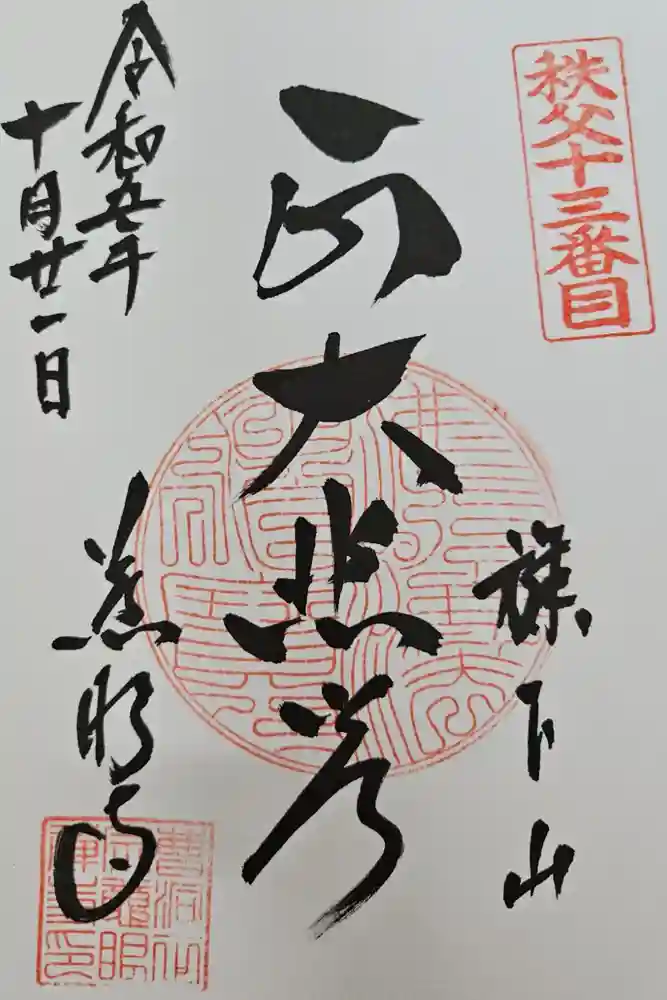 秩父十三番目
旗下山
正大悲尊
令和五年
十月廿一日
慈眼寺